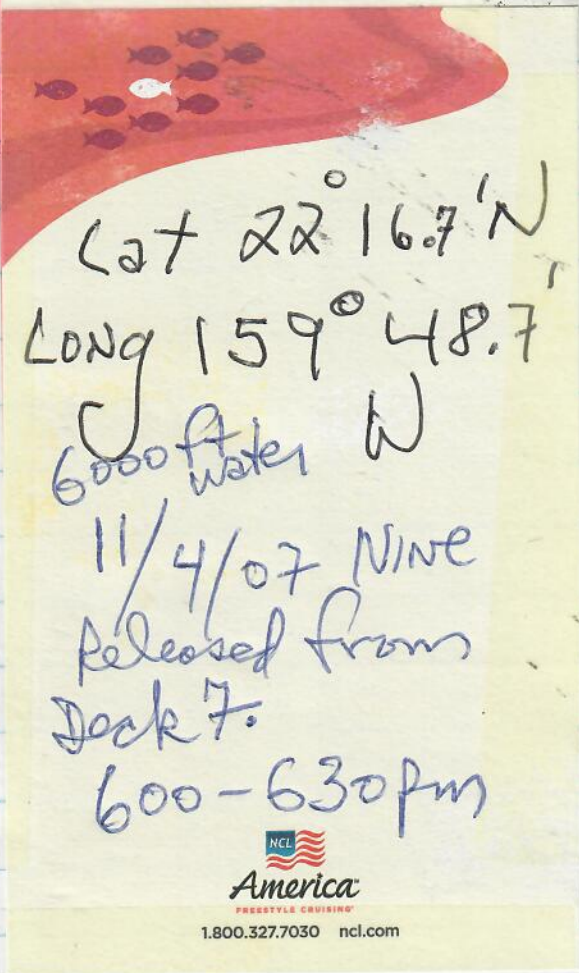 Lat 22° 16.7' N
Long 159° 48.7'
W
6000 ft
water
11/4/07 Nine
Released from
Deck 7.
600-630pm
NCL
America™
FREESTYLE CRUISING®
1.800.327.7030 ncl.com